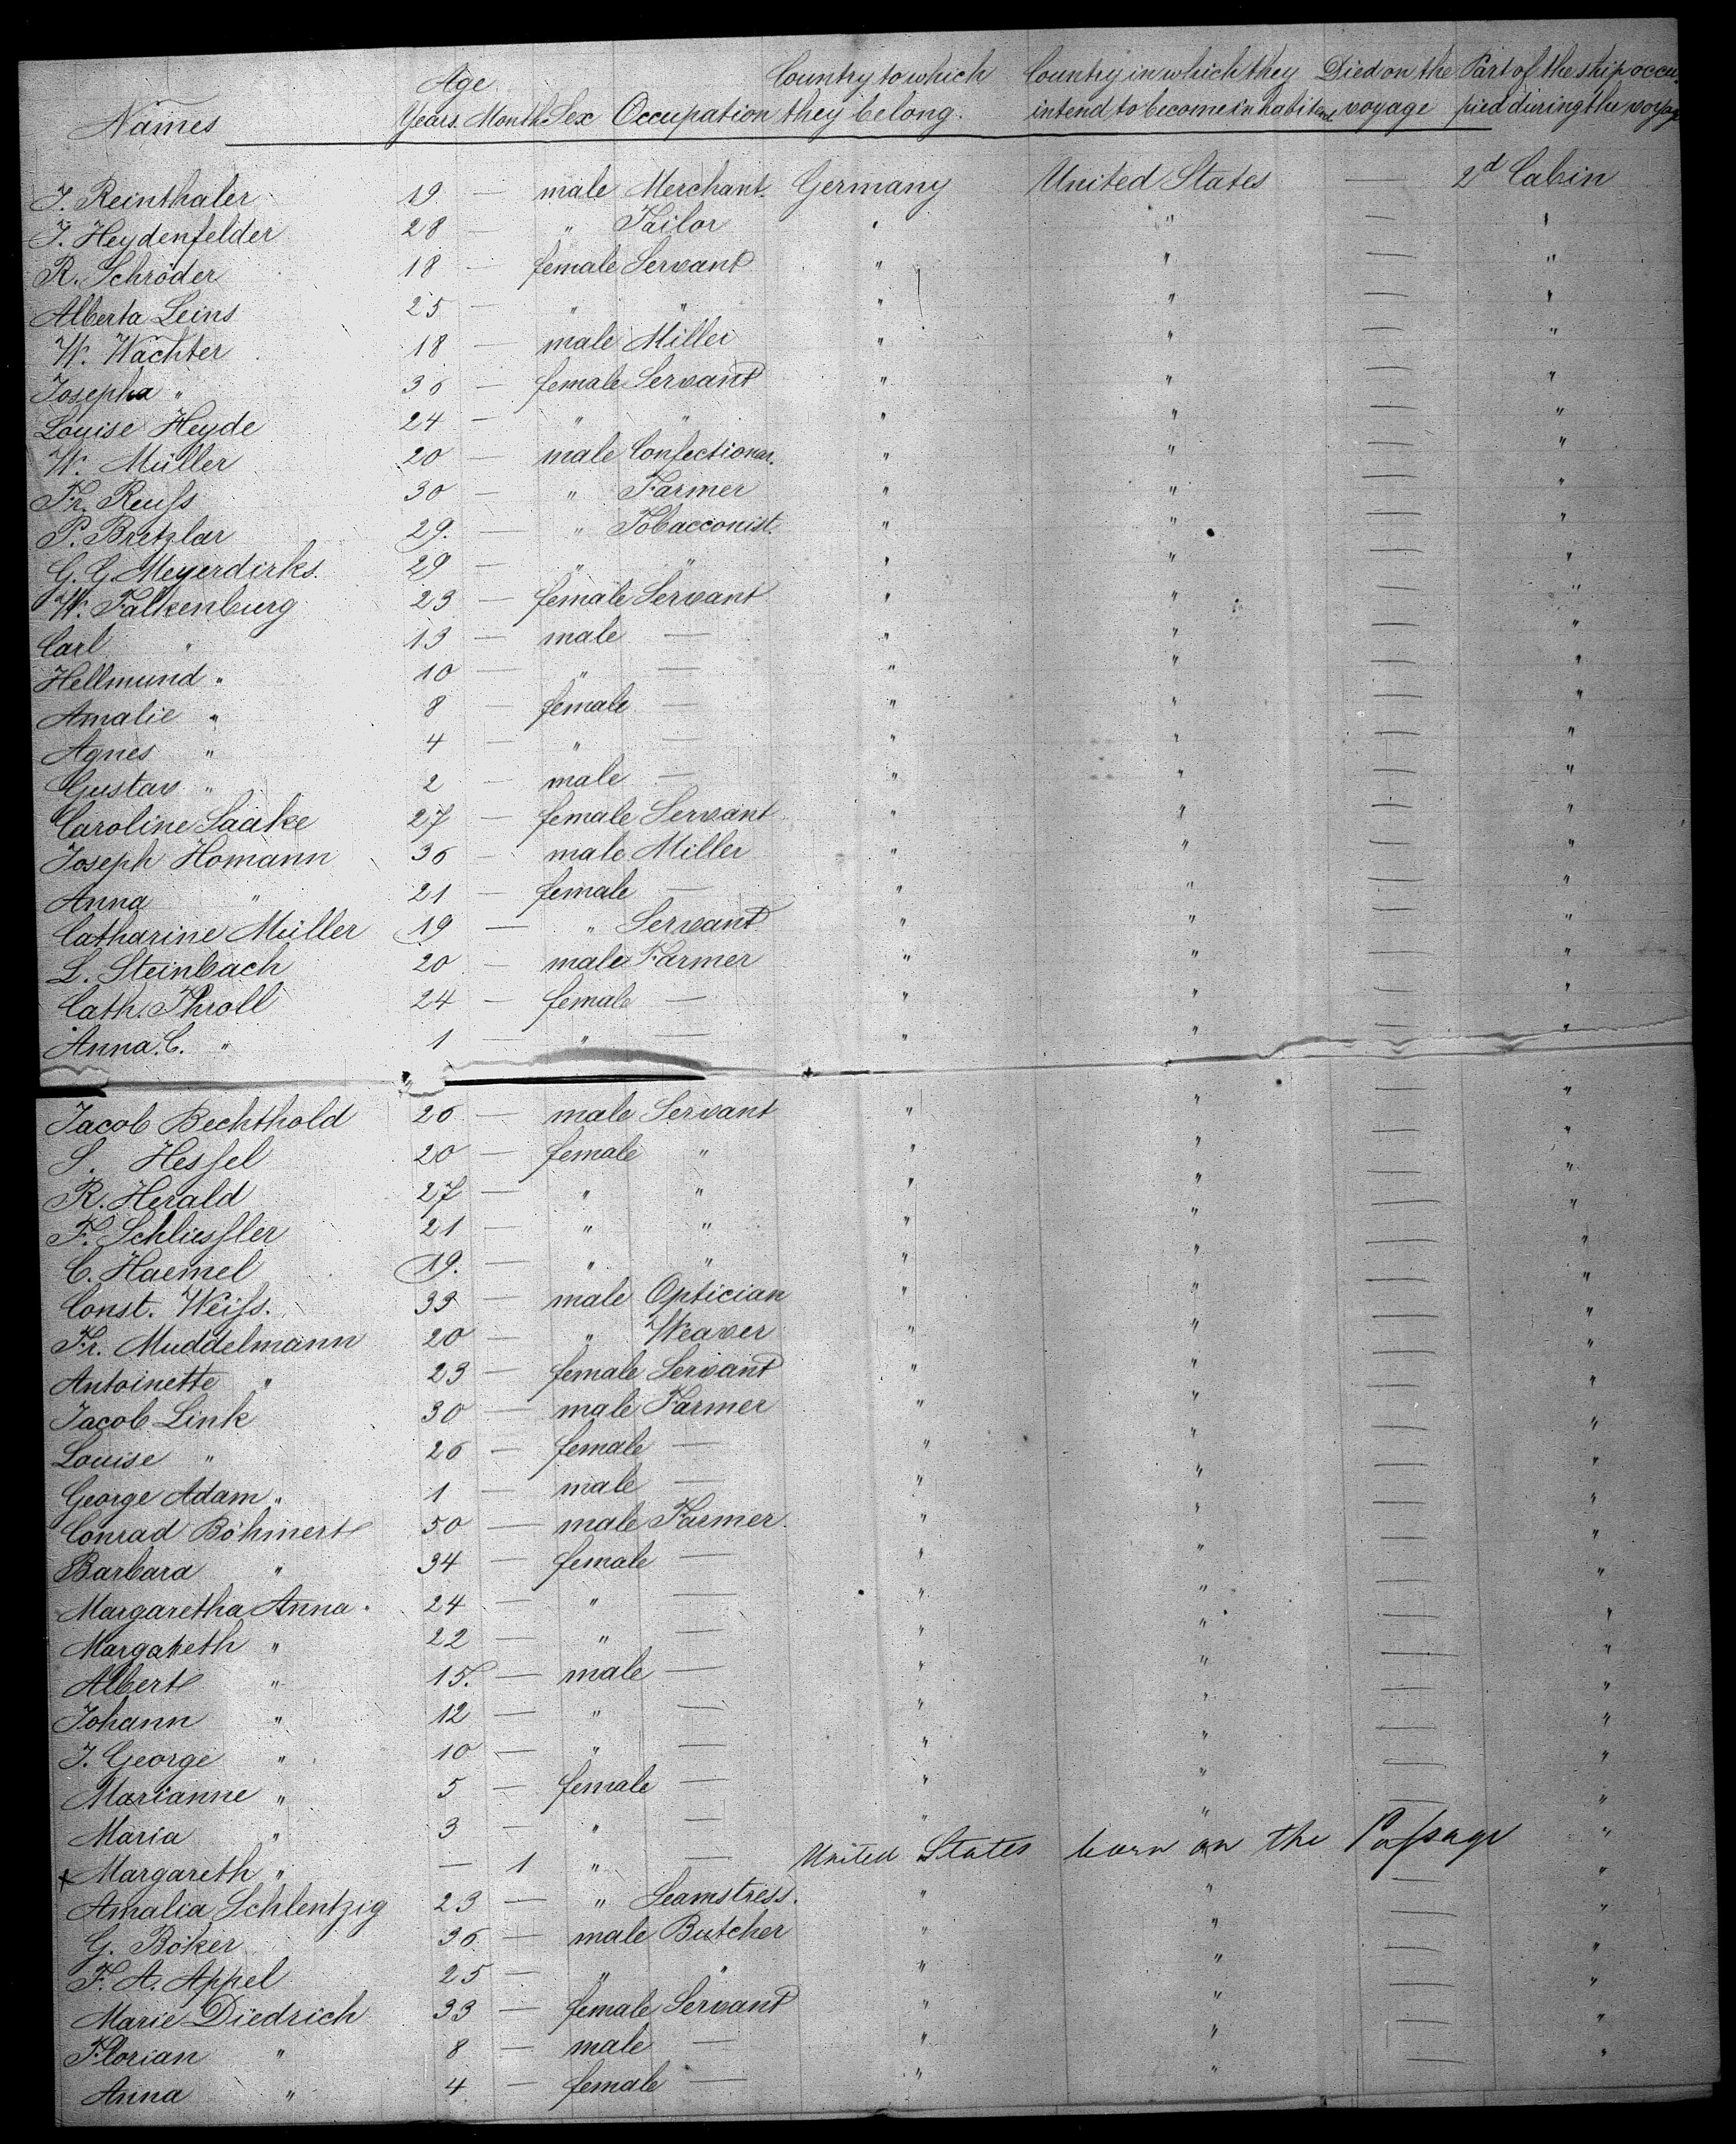 Names Age Years. Month. Sex Occupation Country to which they belong. Country in which they intend to become inhabitants Died on the voyage Part of the ship occupied during the voyage
J. Reinthaler 19 — male Merchant Germany United States — 2d Cabin
J. Heydenfelder 28 — " Tailor " " — "
R. Schröder 18 — female Servant " " — "
Alberta Leins 25 — " " " " — "
W. Wächter 18 — male Miller " " — "
Josepha " 36 — female Servant " " — "
Louise Heyde 24 — " " " " — "
W. Müller 20 — male Confectioner. " " — "
Fr. Reuſs 30 — " Farmer " " — "
P. Bretzlar 29. — " Tobacconist. " " — "
G. G. Meyerdirks. 29 — " " " " — "
W. Falkenburg 23 — female Servant " " — "
Carl " 13 — male — " " — "
Hellmund " 10 — " — " " — "
Amalie " 8 — female — " " — "
Agnes " 4 — " — " " — "
Gustav " 2 — male — " " — "
Caroline Saake 27 — female Servant " " — "
Joseph Homann 36 — male Miller " " — "
Anna " 21 — female — " " — "
Catharine Müller 19 — " Servant " " — "
L. Steinbach 20 — male Farmer " " — "
Cath. Throll 24 — female — " " — "
Anna C. " 1 — " — " " — "
Jacob Bechthold 26 — male Servant " " — "
S. Heſsel 20 — female " " " — "
R. Herald 27 — " " " " — "
F. Schlieſsler 21 — " " " " — "
C. Haemel 19. — " " " " — "
Const. Weiſs. 33 — male Optician " " — "
Fr. Muddelmann 20 — " Weaver " " — "
Antoinette " 23 — female Servant " " — "
Jacob Link 30 — male Farmer " " — "
Louise " 26 — female — " " — "
George Adam " 1 — male — " " — "
Conrad Böhmert 50 — male Farmer " " — "
Barbara " 34 — female — " " — "
Margaretha Anna " 24 — " — " " — "
Margareth " 22 — " — " " — "
Albert " 15. — male — " " — "
Johann " 12 — " — " " — "
J. George " 10 — " — " " — "
Marianne " 5 — female — " " — "
Maria " 3 — " — " " — "
x Margareth " — 1 " — United States born on the Paſsage "
Amalia Schlentzig 23 — " Seamstress. " " — "
G. Böker 36 — male Butcher " " — "
F. A. Appel 25 — " " " " — "
Marie Diedrich 33 — female Servant " " — "
Florian " 8 — male — " " — "
Anna " 4 — female — " " — "